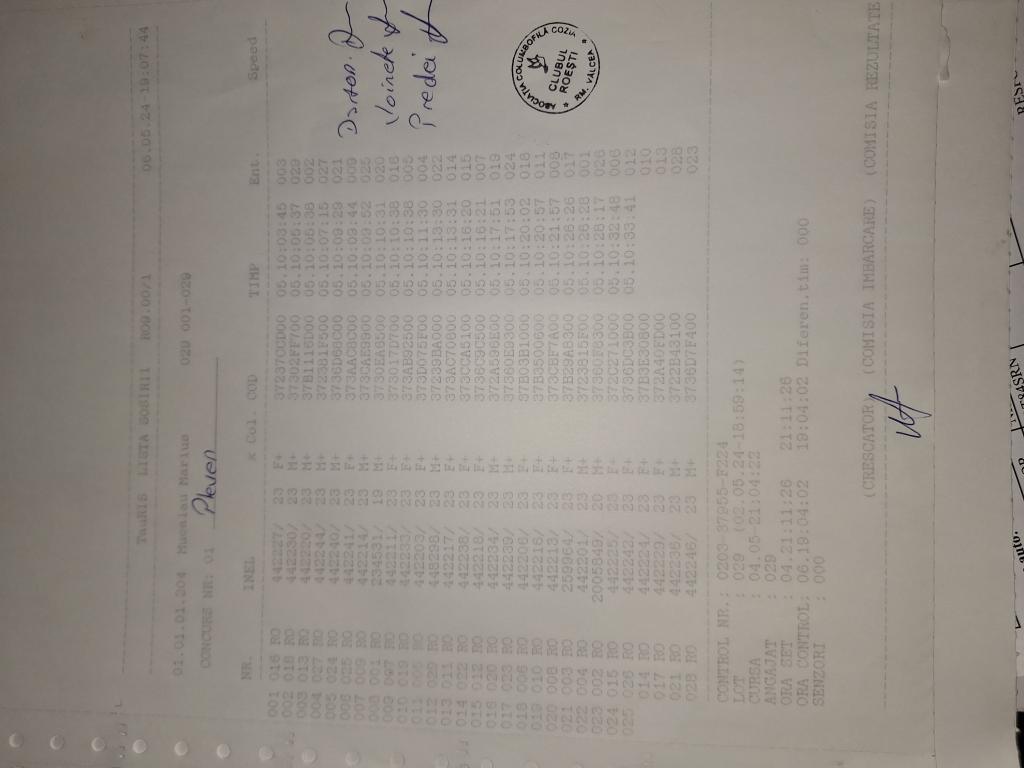 TauRIS LISTA SOSIRII R09.00/1 06.05.24 19:07:44
01.01.01.204 Marius 029 001-029
CONCURS NR: 01 Pleven
NR. INEL X Col. COD TIMP Ent. Speed
001 016 RO 442227/ 23 F+ 37237CCD00 05.10:03:45 003
002 018 RO 442230/ 23 M+ 37302FF700 05.10:05:37 029
003 013 RO 442220/ 23 M+ 37B1116D00 05.10:05:38 002
004 027 RO 442244/ 23 M+ 372381F500 05.10:07:15 027
005 024 RO 442240/ 23 M+ 3736D68C00 05.10:09:29 021
006 025 RO 442241/ 23 F+ 373AAC8C00 05.10:09:44 009
007 009 RO 442214/ 23 M+ 373CAE3900 05.10:09:52 025
008 001 RO 234531/ 19 M+ 3730EA8500 05.10:10:31 020
009 007 RO 442211/ 23 F+ 373017D700 05.10:10:38 016
010 019 RO 442233/ 23 F+ 373AB92500 05.10:10:38 005
011 005 RO 442203/ 23 F+ 373D07EF00 05.10:11:30 004
012 029 RO 448298/ 23 M+ 3723EBA000 05.10:13:30 022
013 011 RO 442217/ 23 F+ 373AC70800 05.10:13:31 014
014 022 RO 442238/ 23 F+ 373CCA5100 05.10:16:20 015
015 012 RO 442218/ 23 F+ 3736C9C500 05.10:16:21 007
016 020 RO 442234/ 23 M+ 372A396E00 05.10:17:51 019
017 023 RO 442239/ 23 M+ 3736CE9300 05.10:17:53 024
018 006 RO 442206/ 23 F+ 37B03B1000 05.10:20:02 018
019 010 RO 442216/ 23 F+ 37B3500600 05.10:20:57 011
020 008 RO 442213/ 23 F+ 373CBF7A00 05.10:21:57 008
021 003 RO 259964/ 23 F+ 37B29A8300 05.10:26:26 017
022 004 RO 442201/ 23 M+ 3723E1BF00 05.10:26:28 001
023 002 RO 2005849/ 20 M+ 373601F8300 05.10:28:17 026
024 015 RO 442225/ 23 F+ 372C271000 05.10:32:48 006
025 026 RO 442242/ 23 F+ 3736DC3B00 05.10:33:41 012
014 RO 442224/ 23 F+ 37B3E30800 010
017 RO 442229/ 23 F+ 372A40FD00 013
021 RO 442236/ 23 M+ 3722B43100 028
028 RO 442246/ 23 M+ 3736D7F400 023
CONTROL NR.: 0203-87955-F224
LOT : 029 (02.05.24-18:59:14)
CURSA : 04.05-21:04:22
ANGAJAT : 029
ORA SET : 04.21:11:26 21:11:26
ORA CONTROL: 06.19:04:02 19:04:02 Diferen.tim: 000
SENZORI : 000
(CRESCATOR) (COMISIA IMBARCARE) (COMISIA REZULTATE
Voinete
Predei
ASOCIATIA COLUMBOFILA COZIA
CLUBUL
ROESTI
RM. VALCEA